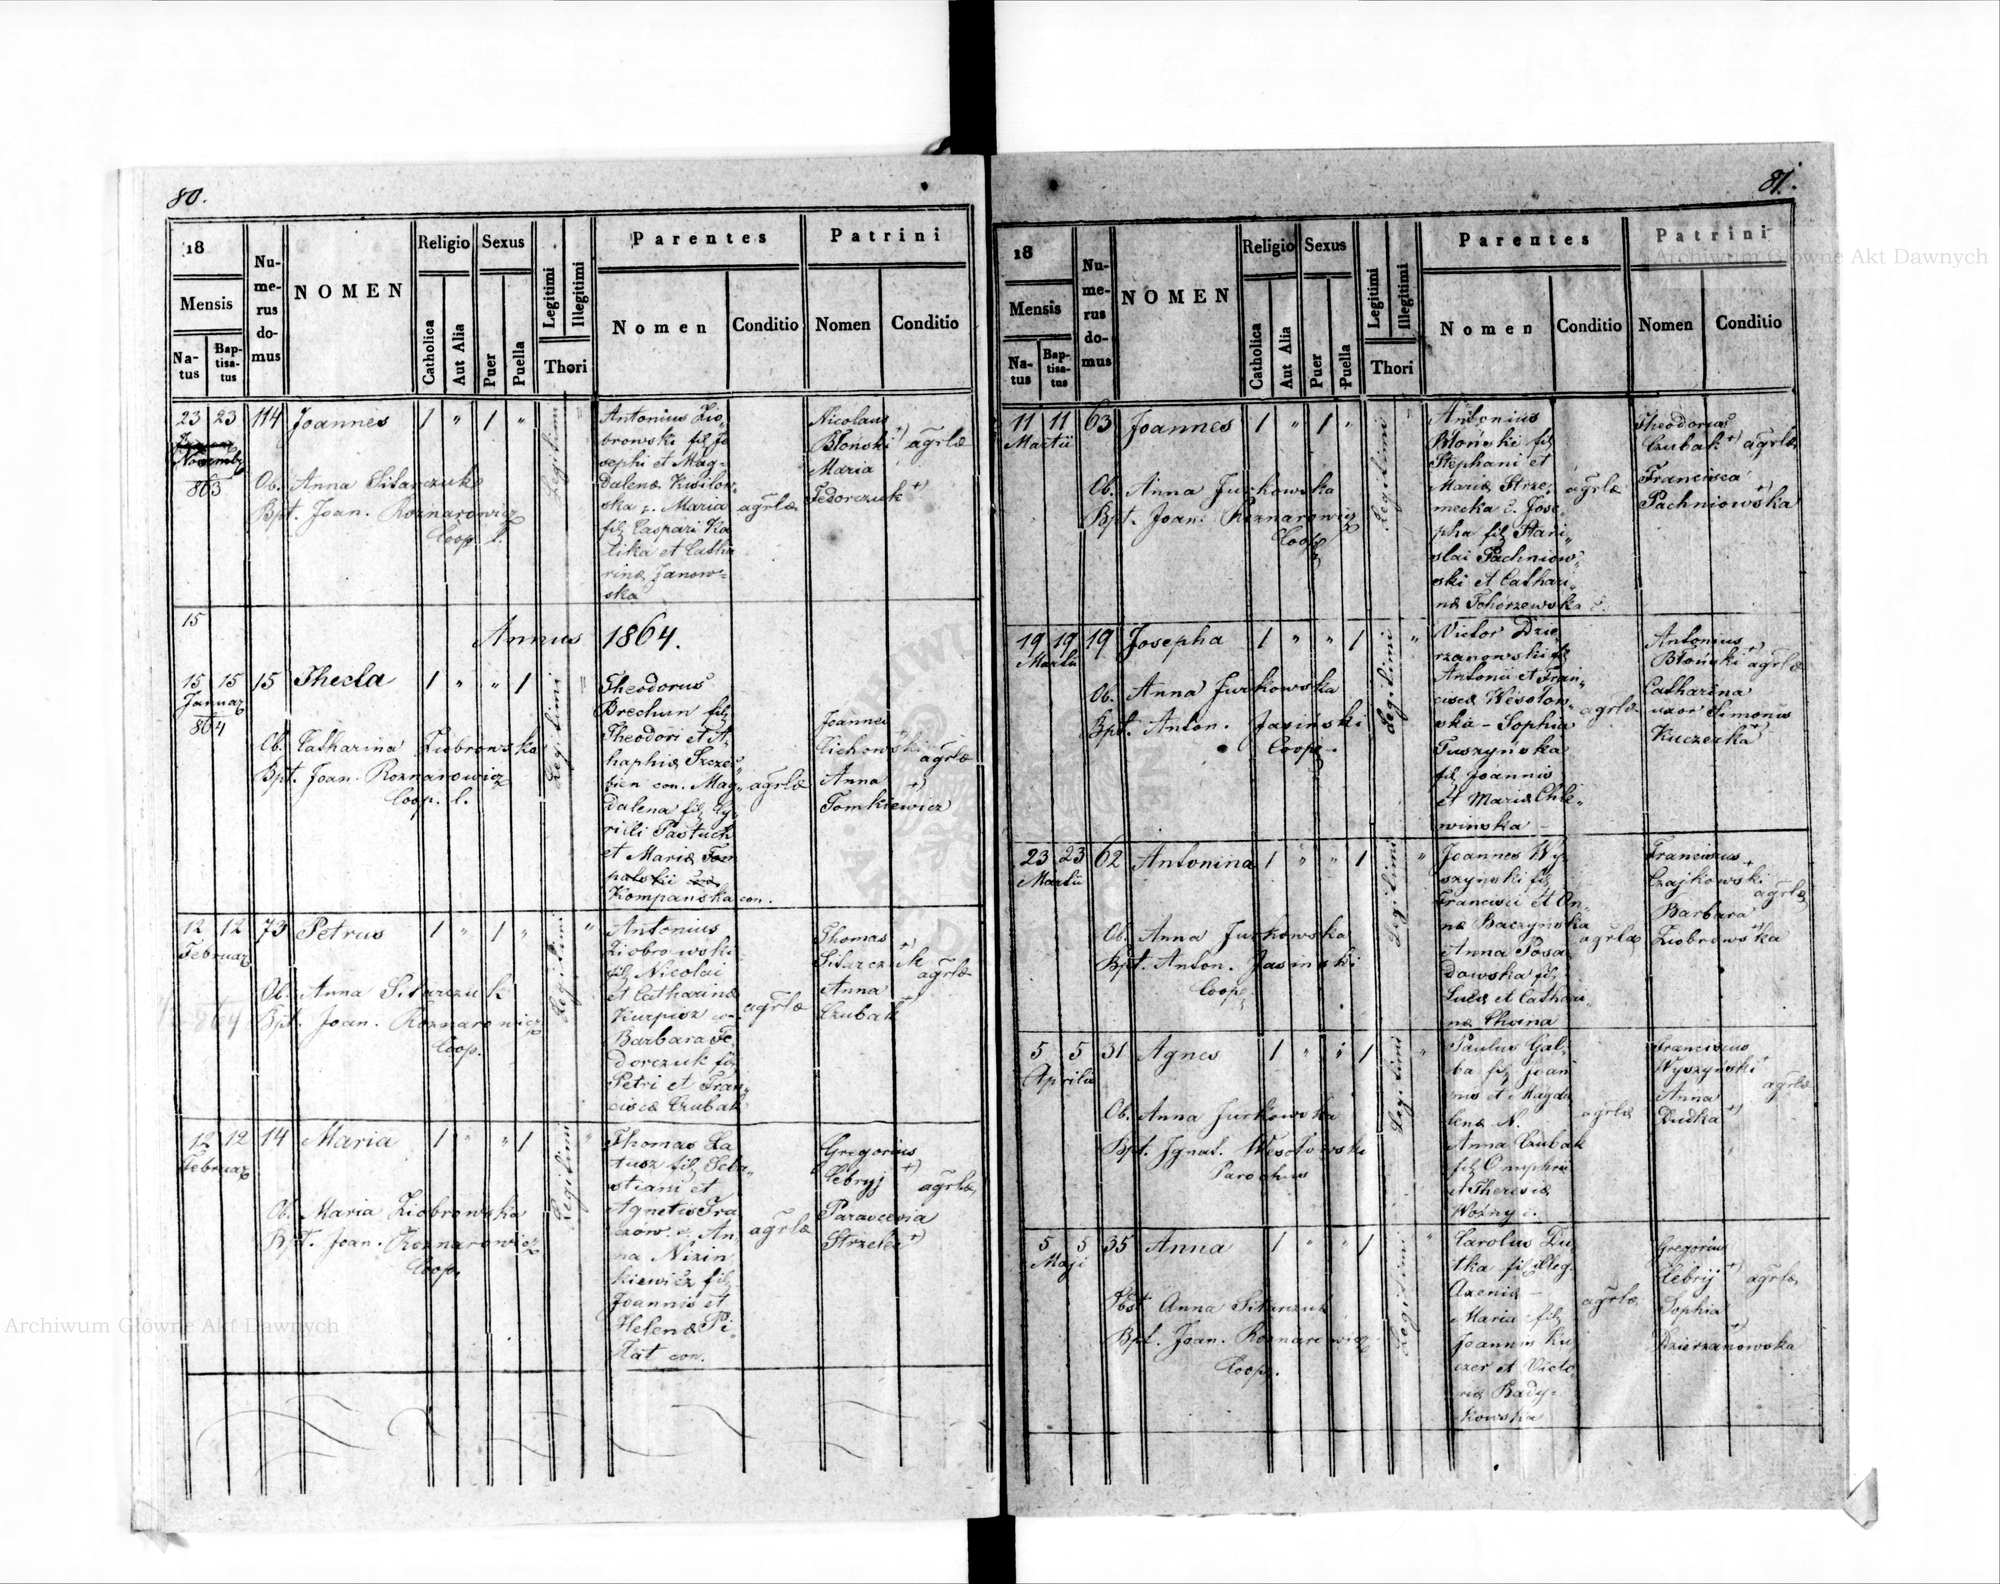 80.
18
Mensis
Na-
tus
Bap-
tisa-
tus
Nu-
me-
rus
do-
mus
NOMEN
Religio
Catholica
Aut Alia
Sexus
Puer
Puella
Legitimi
Illegitimi
Thori
Parentes
Nomen
Conditio
Patrini
Nomen
Conditio
23 23 114 Joannes 1 " 1 "
Novemb
863
Ob. Anna Sitarczuk
Bpt. Joan. Roznarowicz
Coop. l.
Legitimi
Antonius Zio„
browski fil Jo
sephi et Mag„
dalenæ Kwilow„
ska z. Maria
fil Caspari Ka
tika et Catha
rinæ Janow„
ska
agrlæ
Nicolaus
Błoński +) agrlæ
Maria
Fedorczuk +)
15
Annus 1864.
15 15 15 Thecla 1 " " 1
Januar
864
Ob. Catharina Ziobrowska
Bpt. Joan. Roznarowicz
Coop. l.
Legitimi
Theodorus
Brechun fil
Theodori et A„
haphiæ Szcze„
bien con. Mag„
dalena fil Cy„
rilli Pastuch
et Mariæ
Kompańska con.
agrlæ
Joannes
Cichowski agrlæ
Anna +)
Tomkiewicz
12 12 73 Petrus 1 " 1 "
Februar
Ob. Anna Sitarczuk
Bpt. Joan. Roznarowicz
Coop.
Legitimi
Antonius
Ziobrowski
fil Nicolai
et Catharinæ
Kurpisz con
Barbara Fe„
dorczuk fil
Petri et Fran„
ciscæ Czubak
agrlæ
Thomas +)
Sitarczuk agrlæ
Anna
Czubak +)
12 12 14 Maria 1 " " 1
Februar
Ob. Maria Ziobrowska
Bpt. Joan. Roznarowicz
Coop.
Legitimi
Thomas Ra
tusz fil Seba„
stiani et
Agnetis Fra
czow. c. An
na Nizin
kiewicz fil
Joannis et
Helenæ Pi„
łat con.
agrlæ
Gregorius
Cebryj +) agrlæ
Parascevia
Strzelec +)
81.
18
Mensis
Na-
tus
Bap-
tisa-
tus
Nu-
me-
rus
do-
mus
NOMEN
Religio
Catholica
Aut Alia
Sexus
Puer
Puella
Legitimi
Illegitimi
Thori
Parentes
Nomen
Conditio
Patrini
Nomen
Conditio
11 11 63 Joannes 1 " 1 "
Martii
Ob. Anna Jurkowska
Bpt. Joan. Roznarowicz
Coop
Legitimi
Antonius
Błoński fil
Stephani et
Mariæ Strze„
mecka c. Jose„
pha fil Stani„
slai Pachniow„
ski et Cathari„
næ Tchórzewska c.
agrlæ
Theodorus
Czubak +) agrlæ
Francisca
Pachniowska +)
19 19 19 Josepha 1 " " 1 "
Martii
Ob. Anna Jurkowska
Bpt. Anton. Jasiński
Coop.
Legitimi
Victor Dzie„
rzanowski fil
Antonii et Fran„
ciscæ Wesołow„
ska – Sophia
Tuszyńska
fil Joannis
et Mariæ Chle„
wińska –
agrlæ
Antonius
Błoński +) agrlæ
Catharina
uxor Simonis
Kuczerka +)
23 23 62 Antonina 1 " " 1 "
Martii
Ob. Anna Jurkowska
Bpt. Anton. Jasinski
Coop.
Legitimi
Joannes Wy
szynski fil
Francisci et An„
næ Baczyńska
Anna Posa„
dowska fil
Lucæ et Cathari„
næ Choina
agrlæ
Franciscus
Czajkowski + agrlæ
Barbara
Ziobrowska +
5 5 31 Agnes 1 " " 1 "
Aprilis
Ob. Anna Jurkowska
Bpt. Ignat. Wesołowski
Parochus
Legitimi
Paulus Gał„
ba fil Joan
nis et Magda
lenæ N.
Anna Czubak
fil Omphrii
et Theresiæ
Woźny c.
agrlæ
Franciscus
Wyszyński + agrlæ
Anna
Dudka +)
5 5 35 Anna 1 " " 1 "
Maji
Obst Anna Sitarczuk
Bpt. Joan. Roznarowicz
Coop.
Legitimi
Carolus Du„
tka fil illeg.
Axeniæ –
Maria – fil
Joannis Ku
czer et Victo
riæ Bady„
kowska
agrlæ
Gregorius
Cebrij +) agrlæ
Sophia
Dzierzanowska +)
Archiwum Główne Akt Dawnych
Archiwum Główne Akt Dawnych